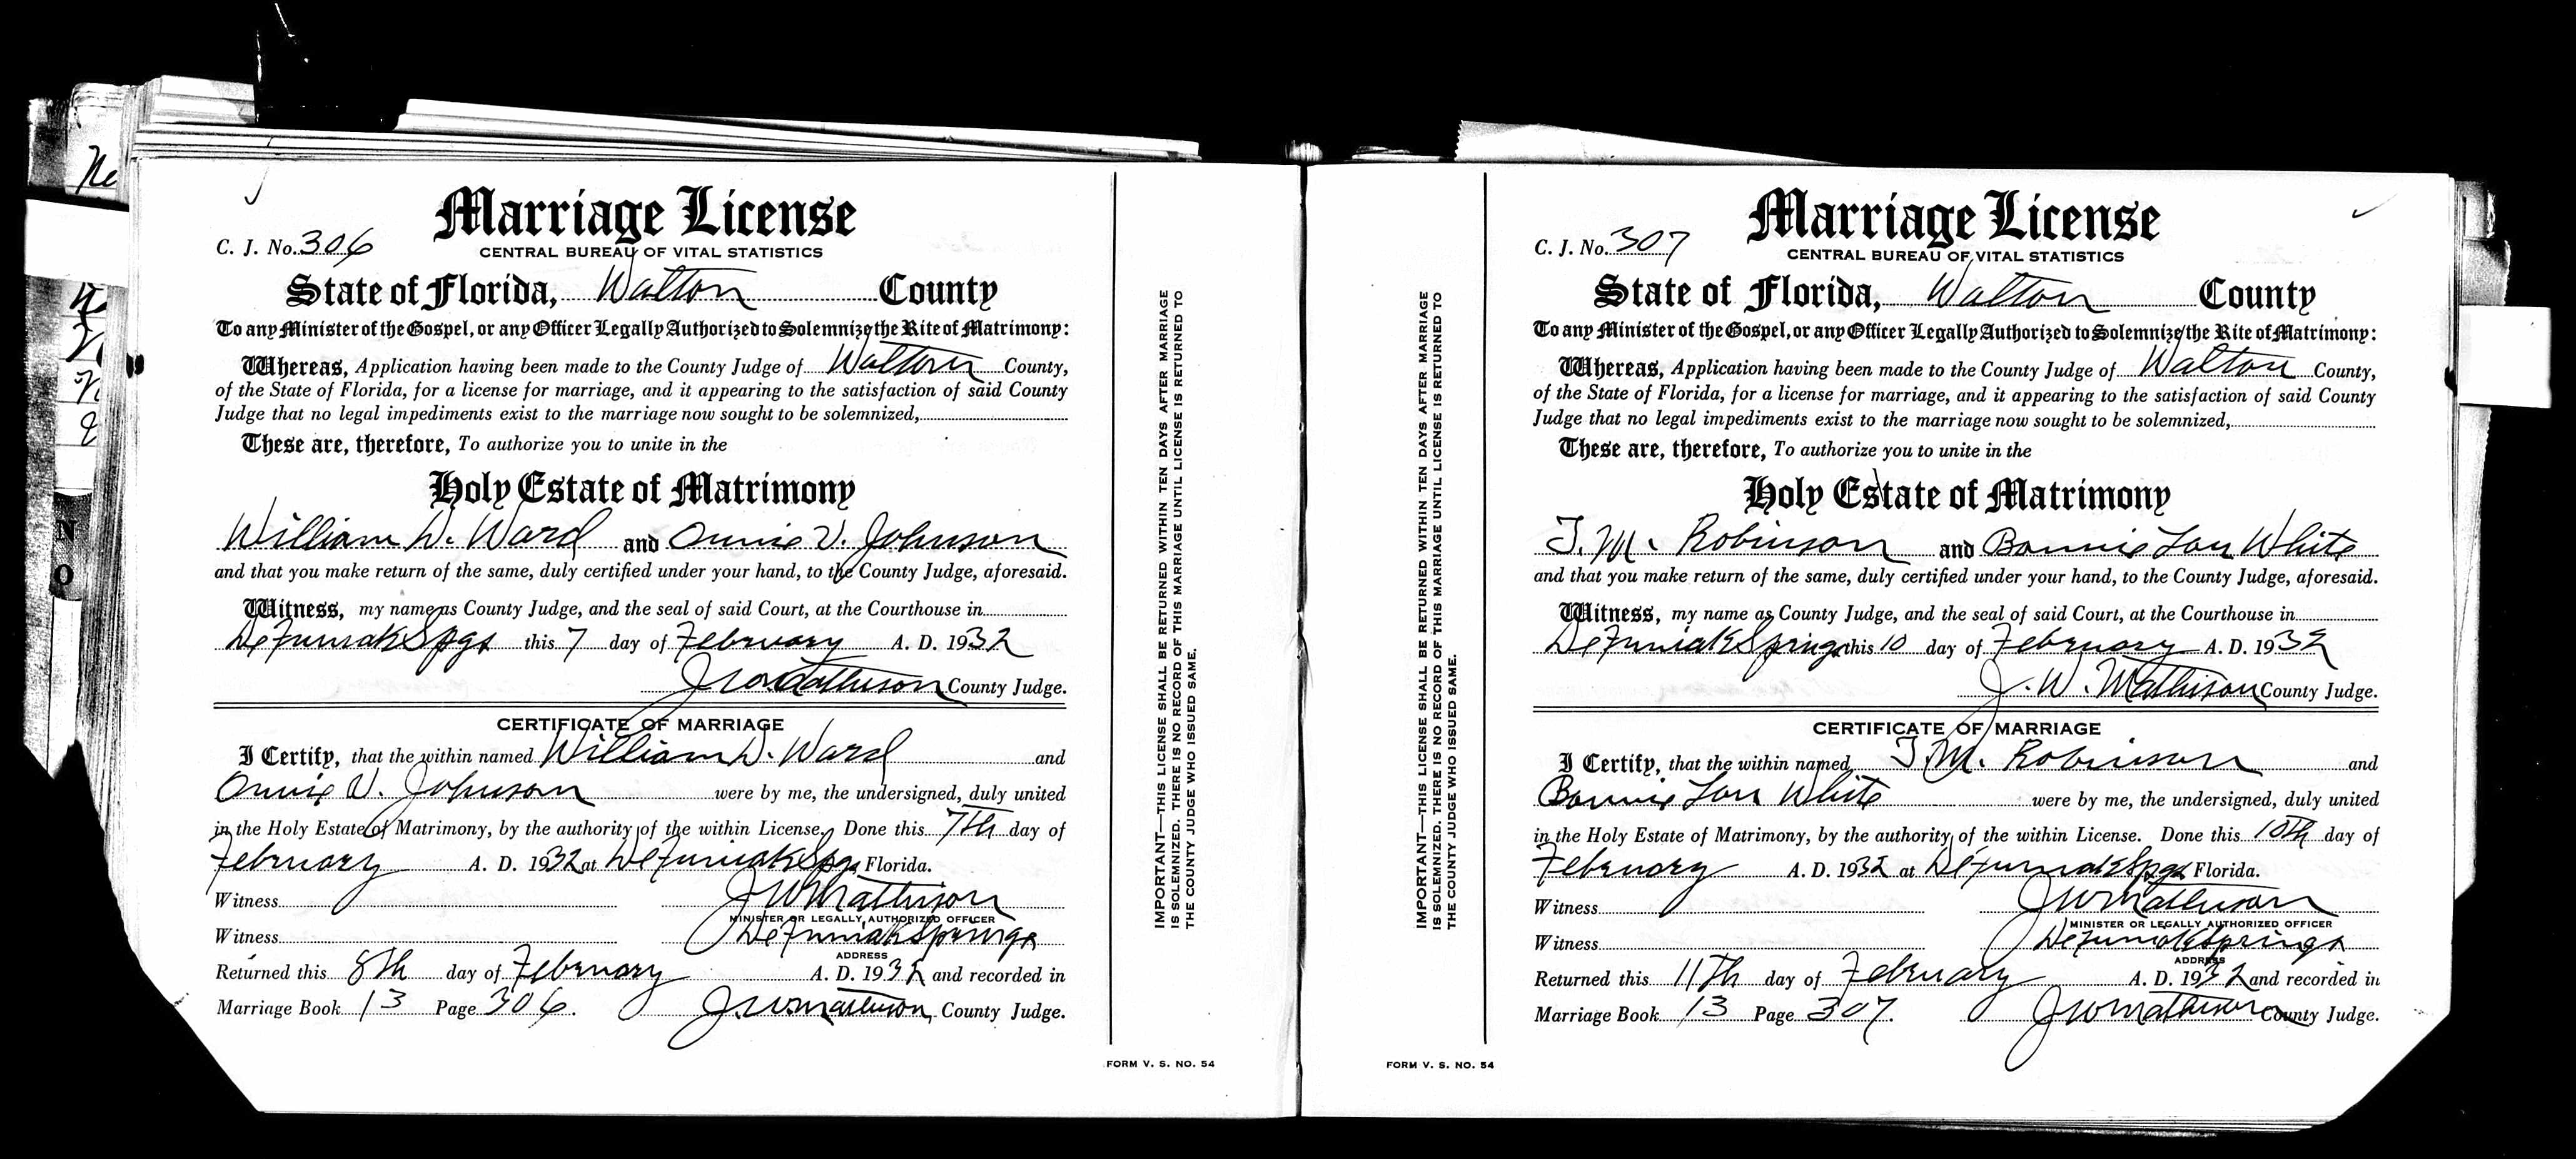 Marriage License
C. J. No. 306
CENTRAL BUREAU OF VITAL STATISTICS
State of Florida, Walton County
To any Minister of the Gospel, or any Officer Legally Authorized to Solemnize the Rite of Matrimony:
Whereas, Application having been made to the County Judge of Walton County,
of the State of Florida, for a license for marriage, and it appearing to the satisfaction of said County
Judge that no legal impediments exist to the marriage now sought to be solemnized,
These are, therefore, To authorize you to unite in the
Holy Estate of Matrimony
William D. Ward and Annie V. Johnson
and that you make return of the same, duly certified under your hand, to the County Judge, aforesaid.
Witness, my name as County Judge, and the seal of said Court, at the Courthouse in
DeFuniak Spgs this 7 day of February A. D. 1932
J W Mathison County Judge.
CERTIFICATE OF MARRIAGE
I Certify, that the within named William D. Ward and
Annie V. Johnson were by me, the undersigned, duly united
in the Holy Estate of Matrimony, by the authority of the within License. Done this 7th day of
February A. D. 1932 at DeFuniak Spgs Florida.
Witness J W Mathison
MINISTER OR LEGALLY AUTHORIZED OFFICER
Witness DeFuniak Springs
ADDRESS
Returned this 8th day of February A. D. 1932 and recorded in
Marriage Book 13 Page 306. J. W. Mathison, County Judge.
IMPORTANT—THIS LICENSE SHALL BE RETURNED WITHIN TEN DAYS AFTER MARRIAGE
IS SOLEMNIZED. THERE IS NO RECORD OF THIS MARRIAGE UNTIL LICENSE IS RETURNED TO
THE COUNTY JUDGE WHO ISSUED SAME.
FORM V. S. NO. 54
Marriage License
C. J. No. 307
CENTRAL BUREAU OF VITAL STATISTICS
State of Florida, Walton County
To any Minister of the Gospel, or any Officer Legally Authorized to Solemnize the Rite of Matrimony:
Whereas, Application having been made to the County Judge of Walton County,
of the State of Florida, for a license for marriage, and it appearing to the satisfaction of said County
Judge that no legal impediments exist to the marriage now sought to be solemnized,
These are, therefore, To authorize you to unite in the
Holy Estate of Matrimony
T. M. Robinson and Bonnie Lou White
and that you make return of the same, duly certified under your hand, to the County Judge, aforesaid.
Witness, my name as County Judge, and the seal of said Court, at the Courthouse in
DeFuniak Springs this 10 day of February A. D. 1932
J. W. Mathison County Judge.
CERTIFICATE OF MARRIAGE
I Certify, that the within named T. M. Robinson and
Bonnie Lou White were by me, the undersigned, duly united
in the Holy Estate of Matrimony, by the authority of the within License. Done this 10th day of
February A. D. 1932 at DeFuniak Spgs Florida.
Witness J W Mathison
MINISTER OR LEGALLY AUTHORIZED OFFICER
Witness DeFuniak Springs
ADDRESS
Returned this 11th day of February A. D. 1932 and recorded in
Marriage Book 13 Page 307. J W Mathison County Judge.
IMPORTANT—THIS LICENSE SHALL BE RETURNED WITHIN TEN DAYS AFTER MARRIAGE
IS SOLEMNIZED. THERE IS NO RECORD OF THIS MARRIAGE UNTIL LICENSE IS RETURNED TO
THE COUNTY JUDGE WHO ISSUED SAME.
FORM V. S. NO. 54